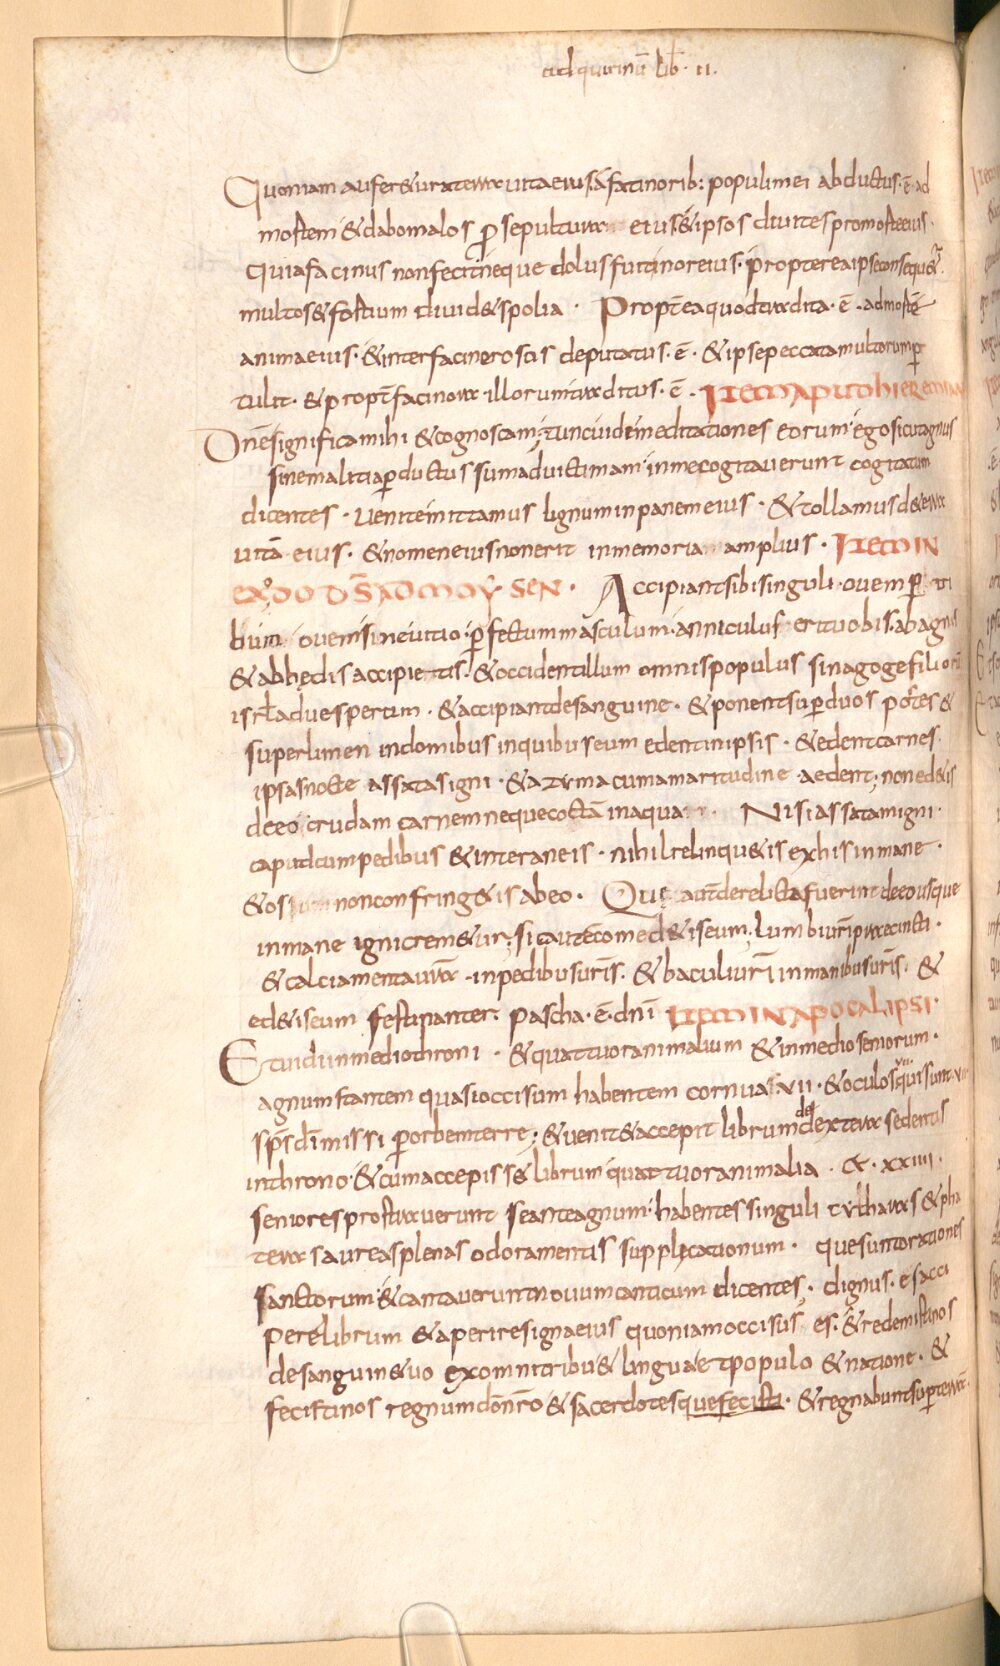 ad quirinū lib̄ · II ·
Quoniam aufer&ur a terra uita eius · a facinorib: populi mei abductus · ē · ad
mortem & dabo malos ꝓ sepultura eius & ipsos diuites pro morte eius ·
quia facinus non fecit neque dolus fuit in ore eius · propterea ipse consequ&ur
multos & fortium diuid& spolia · Propt̄ea quod tradita · ē · ad mortē
anima eius · & inter facinerosos deputatus · ē · & ipse peccata multorum per
tulit · & propt̄ facinora illorum traditus · ē · ITEM APUD HIEREMIAM
Dn̄e significa mihi & cognoscam ; tunc uidi meditationes eorum · ego sicut agnus
sine malitia ꝑductus sum ad uictimam · in me cogitauerunt cogitatum
dicentes · uenite mittamus lignum in panem eius · & tollamus de terra
uitā eius · & nomen eius non erit in memoria amplius · ITEM IN
EXODO DS̄ AD MOYSEN · Accipiant sibi singuli · ouem ꝑ tri
bum ouem sine uitio · ꝑfectum masculum · anniculus erit uobis · ab agnis
& ab hędis accipietis · & occident illum omnis populus sinagoge filiorū
isrl̄ ad uesperum · & accipiant de sanguine · & ponent suꝑ duos postes &
super limen in domibus in quibus eum edent in ipsis · & edent carnes
ipsas nocte assatas igni · & azyma cum amaritudine aedent ; non ed&is
de eo crudam carnem neque coctā in aqua · Nisi assatam igni ·
caput cum pedibus & interaneis · nihil relinqu&is ex his in mane ·
& os non confring&is ab eo · Quę aut̄ derelicta fuerint de eo usque
in mane igni crem&ur ; sic aut̄ comed&is eum · Lumbi ur̄i praecincti ·
& calciamenta ur̄a · in pedibus ur̄is · & baculi ur̄i in manibus ur̄is · &
ed&is eum festinanter · pascha · ē · dn̄i ITEM IN APOCALIPSI ·
Et uidi in medio throni · & quattuor animalium & in medio seniorum ·
agnum stantem quasi occisum habentem cornua · VII · & oculos · VII · qui sunt · VII
sp̄s dī missi ꝑ orbem terre ; & uenit & accepit librum de dextera sedentis
in throno · & cum accepiss& librum quattuor animalia · & · XXIIII ·
seniores prostrauerunt se ante agnum · habentes singuli cytharas & pha
teras aureas plenas odoramentis supplęcationum · que sunt orationes
sanctorum · & cantauerunt nouum canticum dicentes · dignus · es acci
pere librum & aperire signa eius quoniam occisus es · & redemisti nos
de sanguine tuo ex omni tribu & lingua et populo & natione · &
fecisti nos regnum dō nr̄o & sacerdotes que fecisti · & regnabunt super terrā ·